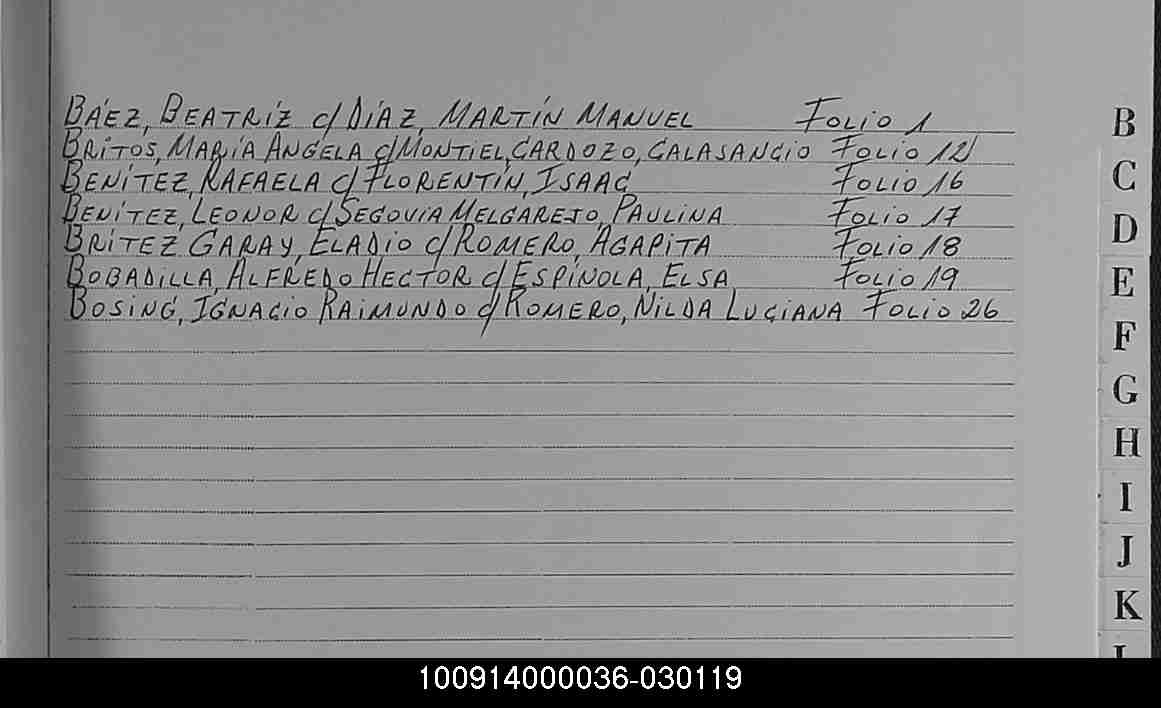 BÁEZ, BEATRÍZ c/ DÍAZ, MARTÍN MANUEL FOLIO 1
BRITOS, MARÍA ANGELA c/ MONTIEL, CARDOZO, CALASANCIO FOLIO 12
BENÍTEZ, RAFAELA c/ FLORENTÍN, ISAAC FOLIO 16
BENÍTEZ, LEONOR c/ SEGOVIA MELGAREJO, PAULINA FOLIO 17
BRÍTEZ GARAY, ELADIO c/ ROMERO, AGAPITA FOLIO 18
BOBADILLA, ALFREDO HECTOR c/ ESPÍNOLA, ELSA FOLIO 19
BOSING, IGNACIO RAIMUNDO c/ ROMERO, NILDA LUCIANA FOLIO 26
B
C
D
E
F
G
H
I
J
K
100914000036-030119